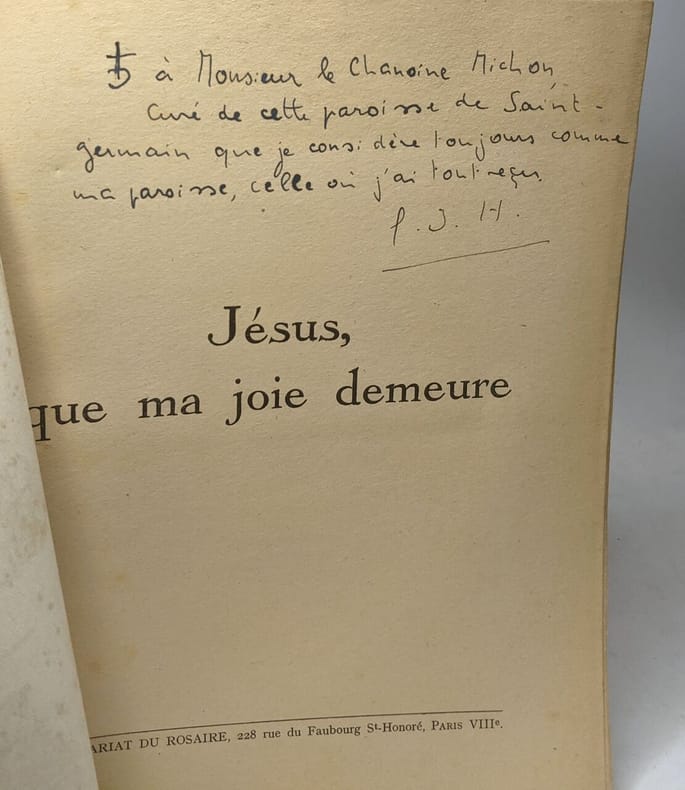 à Monsieur le Chanoine Michon
Curé de cette paroisse de Saint-
germain que je considère toujours comme
ma paroisse, celle où j'ai tout reçu.
f. J. H.
Jésus,
que ma joie demeure
ARIAT DU ROSAIRE, 228 rue du Faubourg St-Honoré, PARIS VIIIe.